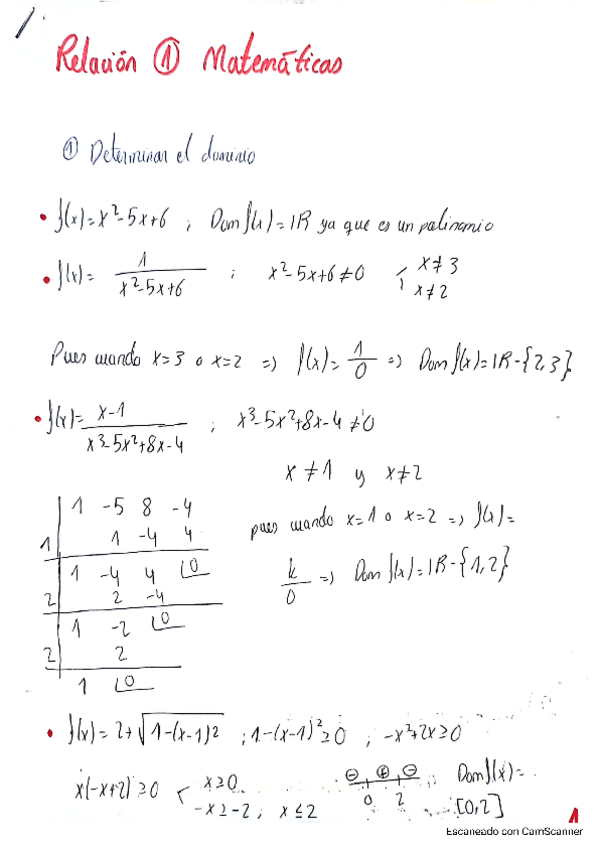 1.
Relación ① Matemáticas
① Determinar el dominio
• f(x)=x²-5x+6 ; Dom f(x)=ℝ ya que es un polinomio
• f(x)= 1/(x²-5x+6) ; x²-5x+6≠0 < x≠3 x≠2
Pues cuando x=3 o x=2 => f(x)= 1/0 => Dom f(x)=ℝ-{2,3}
• f(x)= (x-1)/(x³-5x²+8x-4) ; x³-5x²+8x-4≠0
x≠1 y x≠2
1 -5 8 -4
1 1 -4 4
1 -4 4 0
2 2 -4
1 -2 0
2 2
1 0
pues cuando x=1 o x=2 => f(x)=
k/0 => Dom f(x)=ℝ-{1,2}
• f(x)=2+√(1-(x-1)²) ; 1-(x-1)²≥0 ; -x²+2x≥0
x(-x+2)≥0 < x≥0 -x≥-2; x≤2 ⊖ ⊕ ⊖ 0 2 ; Dom f(x)=
[0,2]
1
Escaneado con CamScanner